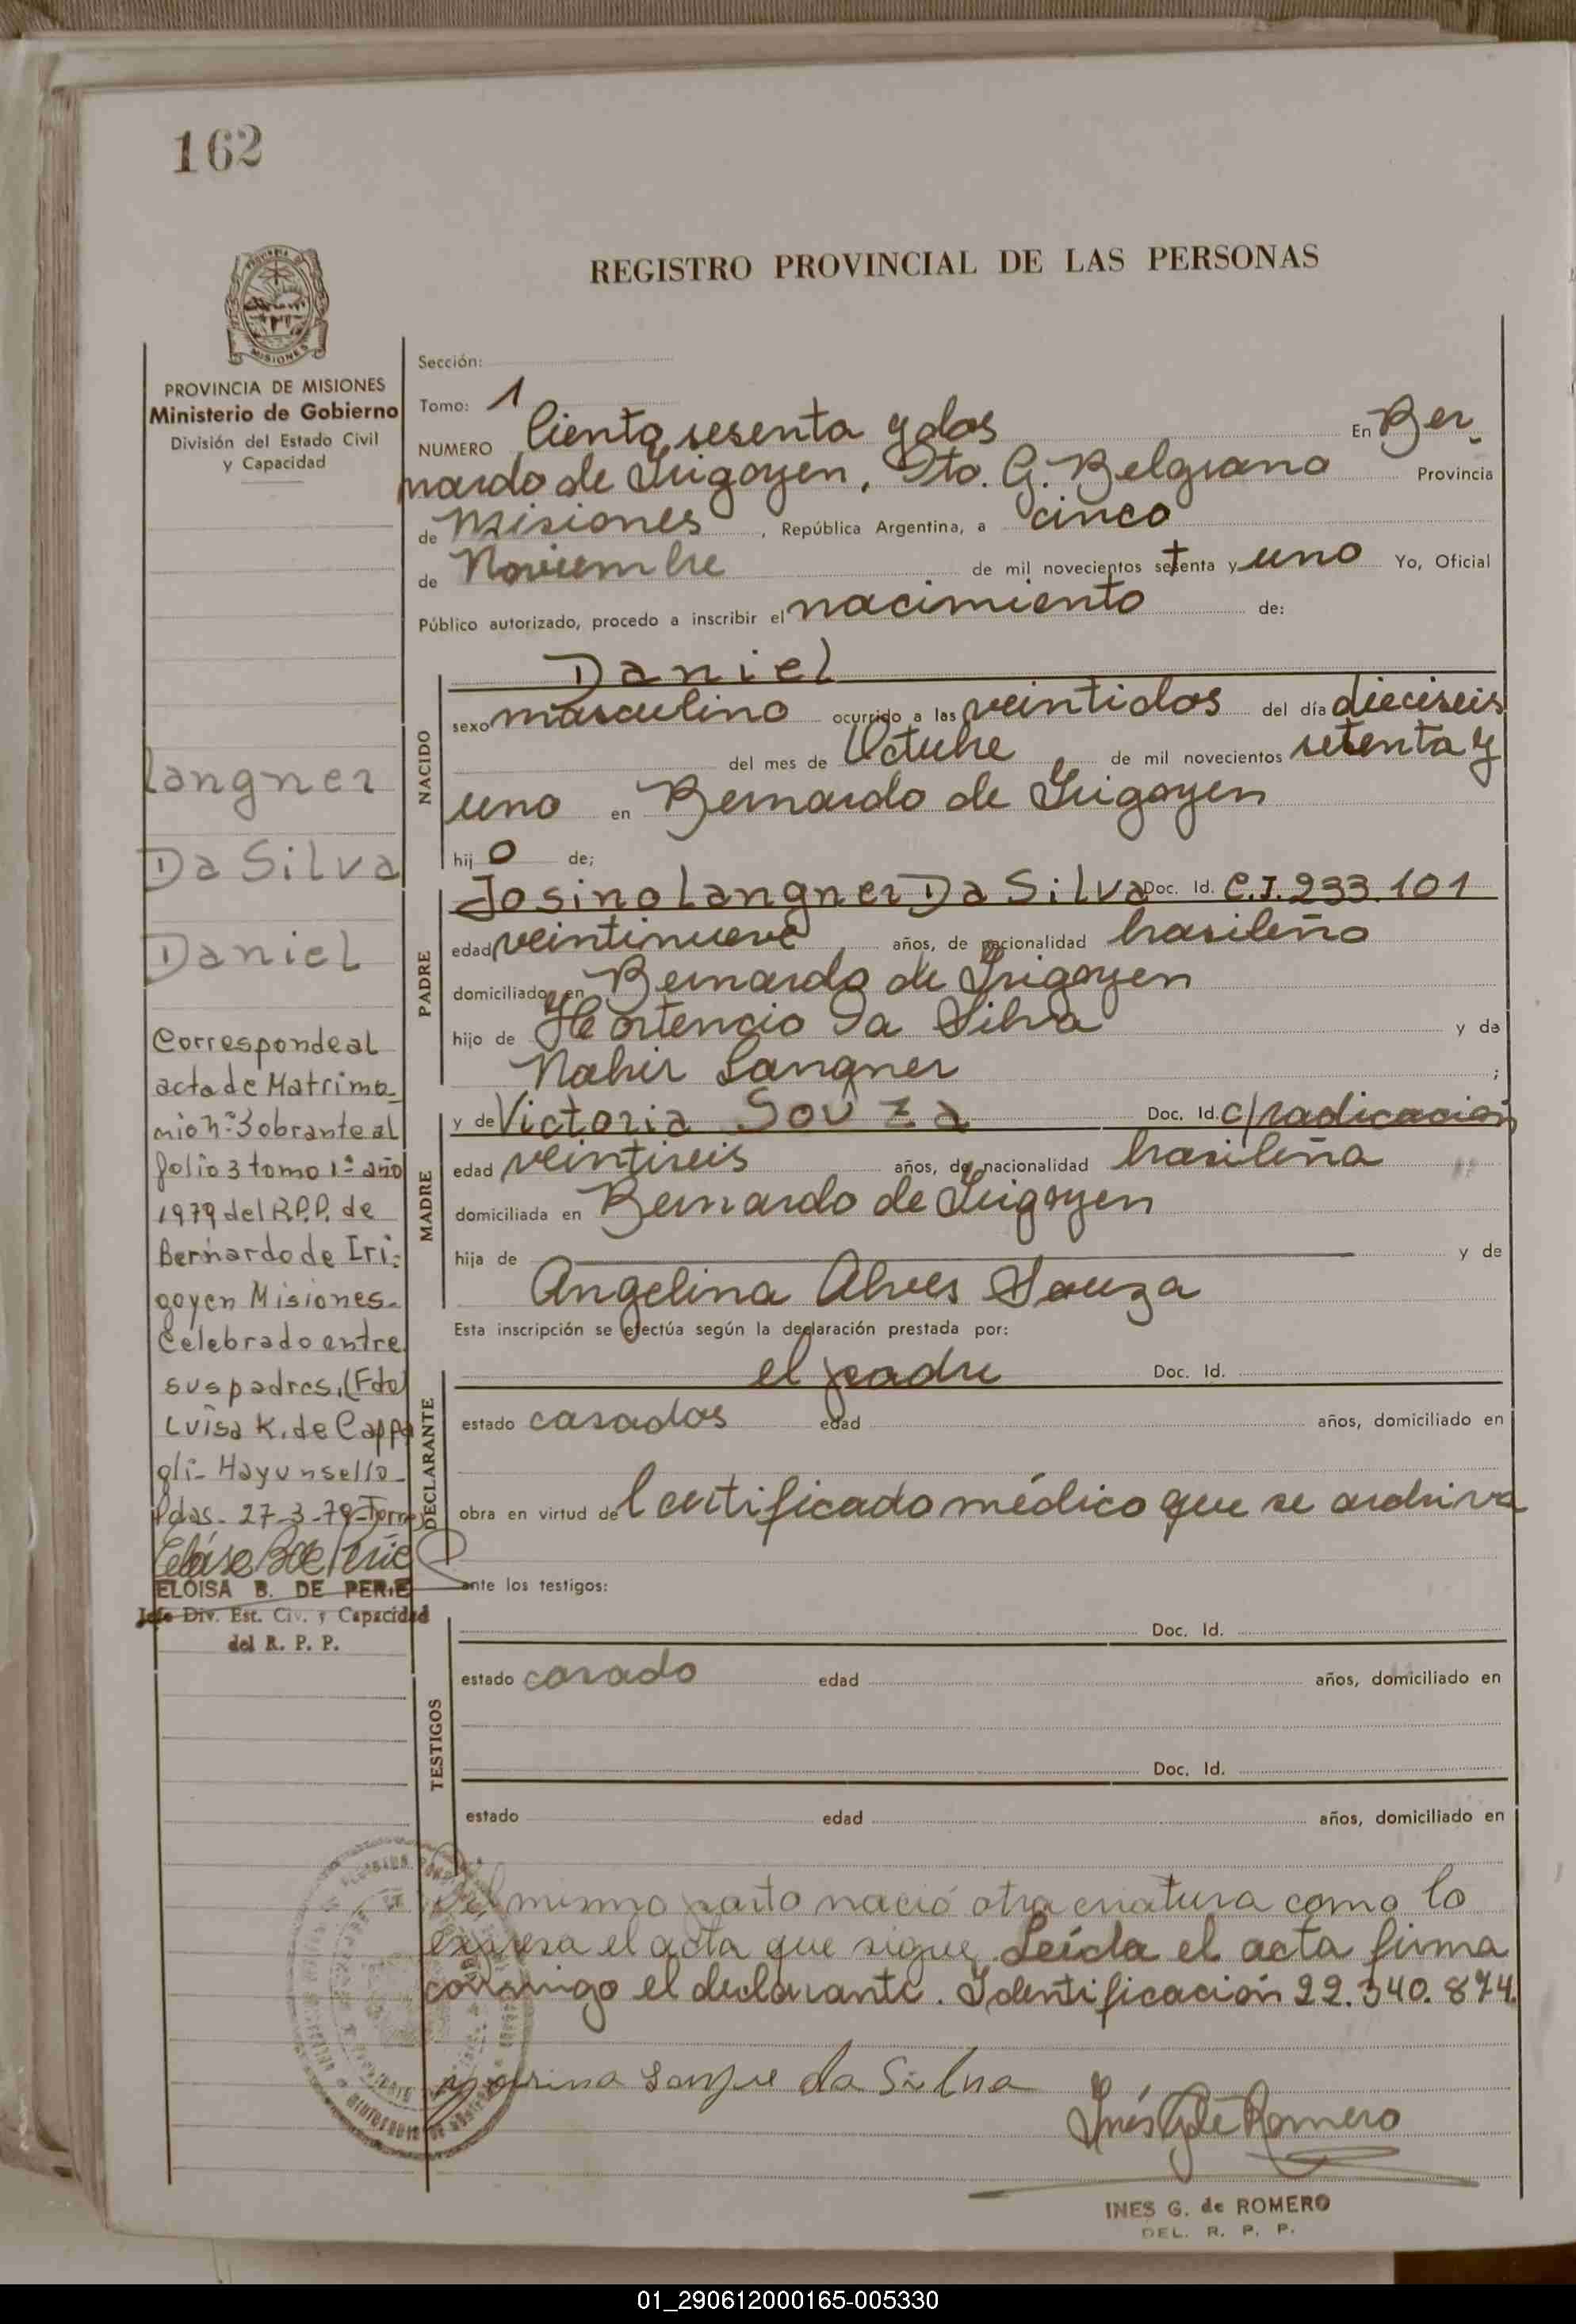 162
REGISTRO PROVINCIAL DE LAS PERSONAS
MISIONES
PROVINCIA DE MISIONES
Ministerio de Gobierno
División del Estado Civil
y Capacidad
Langner
Da Silva
Daniel
Corresponde al
acta de Matrimo-
nio nº 3 obrante al
folio 3 tomo 1º año
1979 del R.P.P. de
Bernardo de Iri-
goyen Misiones.
Celebrado entre
sus padres. (Fdo)
Luisa K. de Cappa
gli- Hay un sello
Pdas. 27-3-79-
ELOISA B. DE PERIE
Jefe Div. Est. Civ. y Capacidad
del R. P. P.
Sección:
Tomo: 1
NUMERO Ciento sesenta y dos En Ber-
nardo de Irigoyen, Dto. G. Belgrano Provincia
de Misiones, República Argentina, a cinco
de Noviembre de mil novecientos setenta y uno Yo, Oficial
Público autorizado, procedo a inscribir el nacimiento de:
NACIDO
Daniel
sexo masculino ocurrido a las veintidos del día dieciseis
del mes de Octubre de mil novecientos setenta y
uno en Bernardo de Irigoyen
hijo de;
PADRE
Josino Langner Da Silva Doc. Id. C.I. 233.101
edad veintinueve años, de nacionalidad brasileño
domiciliado en Bernardo de Irigoyen
hijo de Hortencio Da Silva y de
Nahir Langner ;
MADRE
y de Victoria Souza Doc. Id. c/radicación
edad veintiseis años, de nacionalidad brasileña
domiciliada en Bernardo de Irigoyen
hija de y de
Angelina Alves Souza
Esta inscripción se efectúa según la declaración prestada por:
DECLARANTE
el padre Doc. Id.
estado casados edad años, domiciliado en
obra en virtud de l certificado médico que se archiva
ante los testigos:
TESTIGOS
Doc. Id.
estado casado edad años, domiciliado en
Doc. Id.
estado edad años, domiciliado en
Del mismo parto nació otra criatura como lo
expresa el acta que sigue. Leída el acta firma
conmigo el declarante. Identificación 22.340.874.
da Silva
Inés G de Romero
INES G. de ROMERO
DEL. R. P. P.
01_290612000165-005330